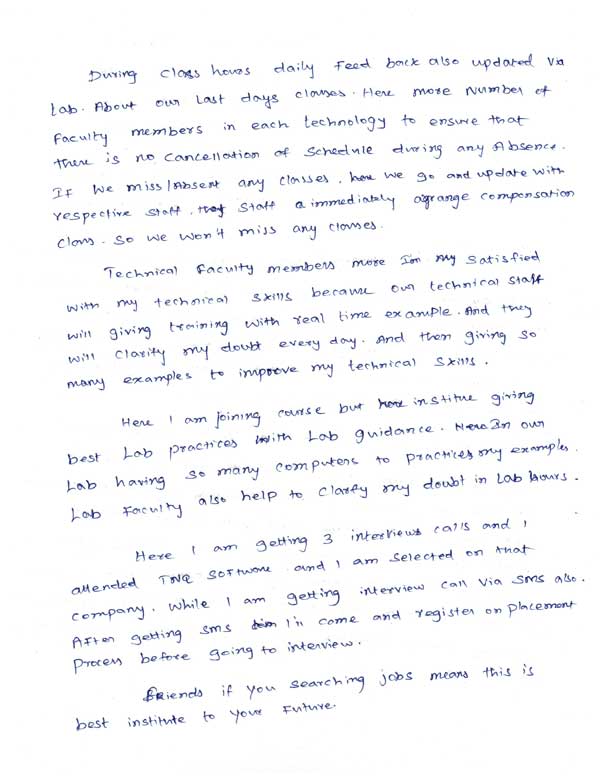 During class hours daily Feed back also updated via
Lab. About our Last days classes. Here more Number of
Faculty members in each technology to ensure that
there is no Cancellation of Schedule during any Absence.
If we miss/Absent any classes, here we go and update with
respective staff. Staff immediately agrange compensation
class. So we won't miss any classes.
Technical Faculty members more I'm my Satisfied
with my technical skills because our technical staff
will giving training with real time example. And they
will clarify my doubt every day. And then giving so
many examples to improve my technical skills.
Here I am joining course but here institue giving
best Lab practices with Lab guidance. In our
Lab having so many computers to practices my examples.
Lab Faculty also help to clarify my doubt in Lab hours.
Here I am getting 3 interviews calls and I
attended TNQ software and I am Selected on that
company. While I am getting interview call via SMS also.
After getting SMS I'n come and register on placement
process before going to interview.
Friends if you searching jobs means this is
best institute to your Future.